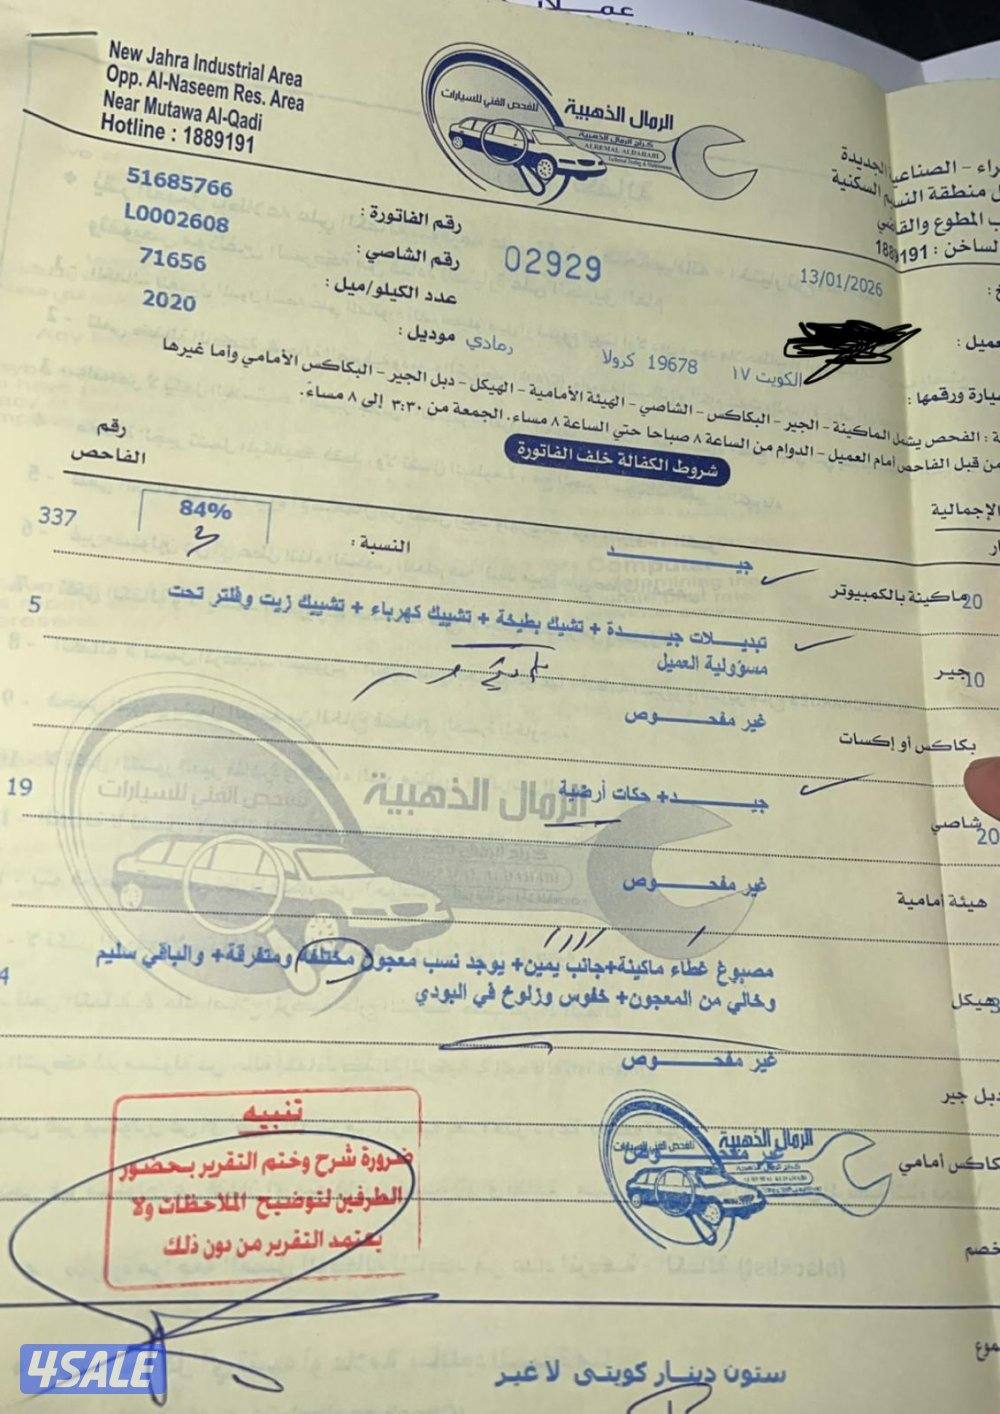 New Jahra Industrial Area
Opp. Al-Naseem Res. Area
Near Mutawa Al-Qadi
Hotline : 1889191
الرمال الذهبية
للفحص الفني للسيارات
كراج الرمال الذهبية
ALREMAL ALDAHABI
راء - الصناعية الجديدة
ل منطقة النسيم السكنية
ب المطوع والقاضي
لساخن : 1889191
51685766 رقم الفاتورة :
L0002608 رقم الشاصي :
02929
13/01/2026
71656 عدد الكيلو/ميل :
2020 موديل :
رمادي
كرولا 19678 الكويت ١٧
عميل :
سيارة ورقمها :
ة : الفحص يشمل الماكينة - الجير - البكاكس - الشاصي - الهيئة الأمامية - الهيكل - دبل الجير - البكاكس الأمامي وأما غيرها
من قبل الفاحص أمام العميل - الدوام من الساعة ٨ صباحا حتي الساعة ٨ مساء. الجمعة من ٣:٣٠ إلى ٨ مساءً.
شروط الكفالة خلف الفاتورة
رقم
الفاحص
الإجمالية
ار
20 ماكينة بالكمبيوتر جيـــــد النسبة : 84% 337
10 جير تبديلات جيـــدة + تشيك بطيخة + تشييك كهرباء + تشييك زيت وفلتر تحت 5
مسؤولية العميل
بكاكس أو إكسات غير مفحـــوص
20 شاصي جيـــد+ حكات أرضية 19
هيئة أمامية غير مفحـــوص
هيكل مصبوغ غطاء ماكينة+جانب يمين+ يوجد نسب معجون مختلفة ومتفرقة+ والباقي سليم 4
وخالي من المعجون+ خفوس وزلوخ في البودي
دبل جير غير مفحـــوص
كاكس أمامي غير مفحـــوص
الرمال الذهبية
للفحص الفني للسيارات
خصم
تنبيه
ضرورة شرح وختم التقرير بحضور
الطرفين لتوضيح الملاحظات ولا
يعتمد التقرير من دون ذلك
موع
ستون دينار كويتي لا غير
4SALE